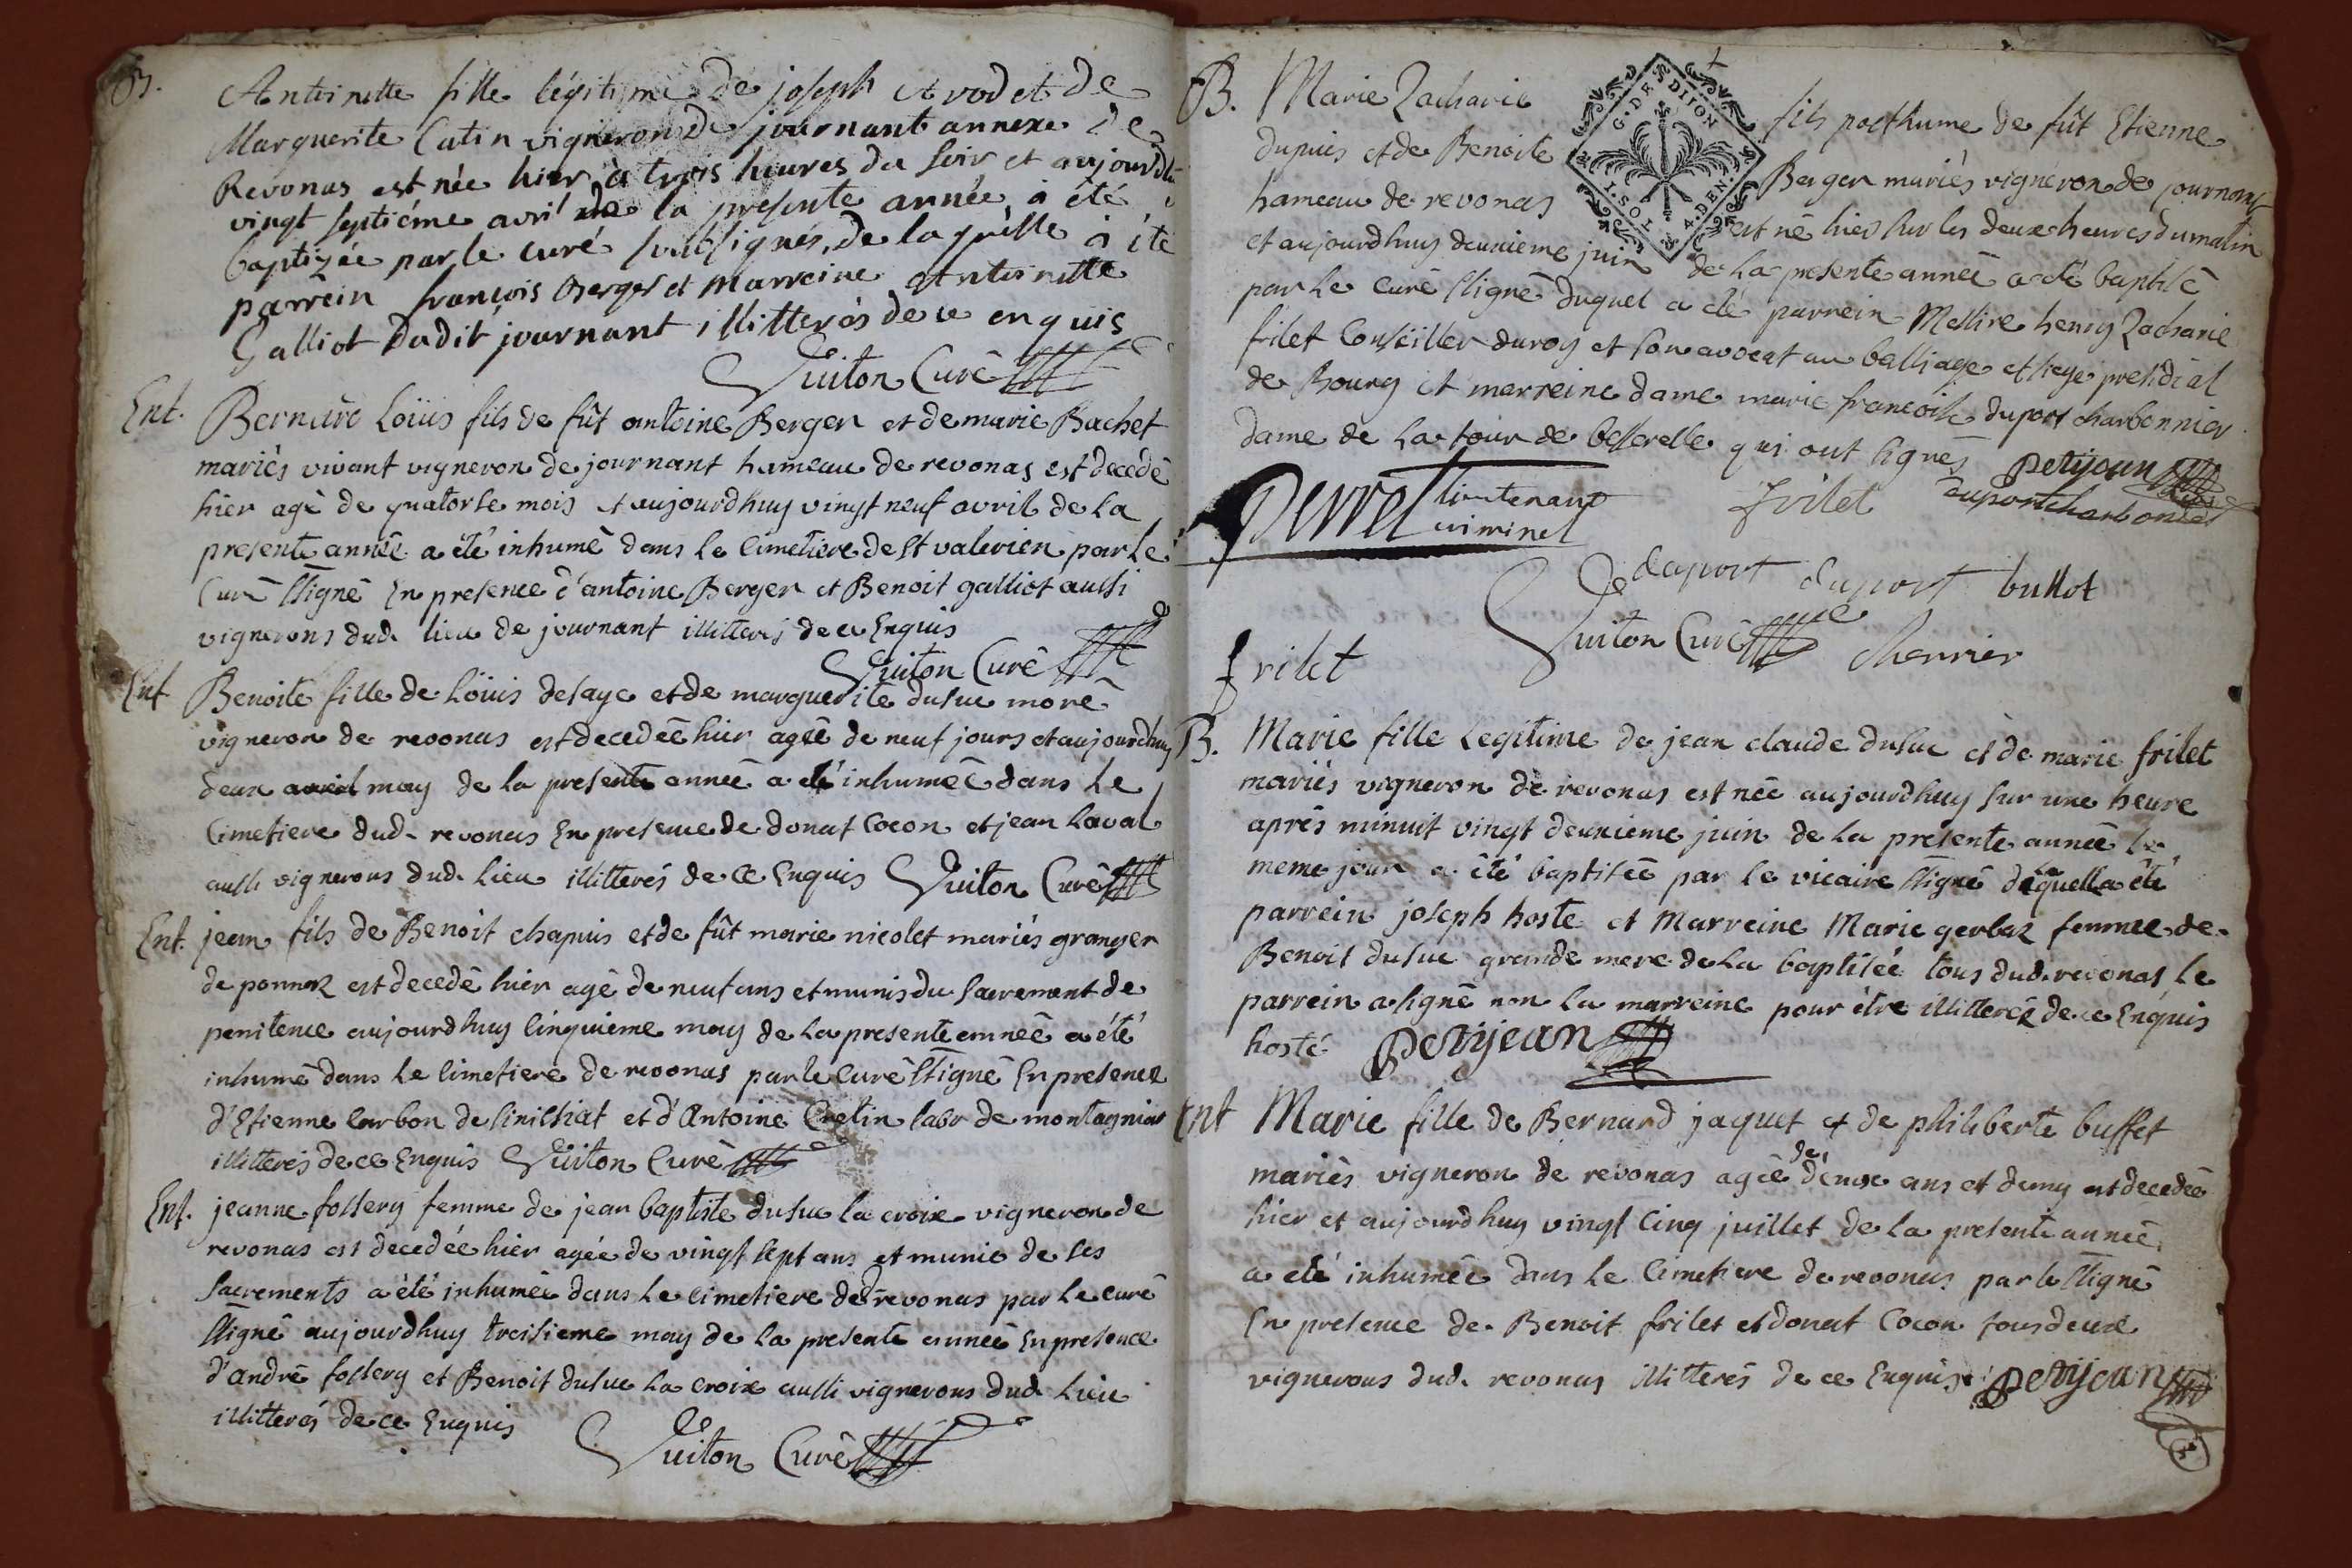 B. Antoinette fille légitime de joseph Avod et de
Marguerite Catin vigneron de journant annexe de
Revonas est née hier à trois heures du soir et aujourdh
vingt septiéme avril de la presente année à été
baptizée par le curé soussigné, de laquelle à été
parrein françois Berger et Marreine Antoinette
Galliot dudit journant illitterés de ce enquis
Guiton Curé
Ent. Bernard Loüis fils de fût antoine Berger et de marie Bachet
mariés vivant vigneron de journant hameau de revonas est decedé
hier agé de quatorse mois et aujourdhuy vingt neuf avril de la
presente année a été inhumé dans le cimetiere de st valerien par le
Curé ssigné En presence d'antoine Berger et Benoit galliot aussi
vignerons dud. lieu de journant illitterés de ce Enquis
Guiton Curé
Ent Benoite fille de Loüis desaye et de marguerite dusuc
vigneron de revonas est decedée hier agée de neuf jours et aujourdhuy
deux avril may de la presente année a été inhumée dans le
Cimetiere dud. revonas En presence de donat Cocon et jean Laval
aussi vignerons dud. lieu illitterés de ce Enquis Guiton Curé
Ent. jean fils de Benoit chapuis et de fût marie nicolet mariés granger
de ponnaz est decedé hier agé de neuf ans et munis du sacrement de
penitence aujourdhuy cinquieme may de la presente année a été
inhumé dans le cimetiere de revonas par le Curé ssigné En presence
d'Etienne Carbon de sinissiat et d'Antoine Cretin labr de montagniat
illitterés de ce Enquis Guiton Curé
Ent. jeanne fossery femme de jean baptiste dusuc la croix vigneron de
revonas est decedée hier agée de vingt sept ans et munie de ses
sacrements a été inhumée dans le cimetiere de revonas par le curé
ssigné aujourdhuy troisieme may de la presente année En presence
d'andré fossery et Benoit dusuc la croix aussi vignerons dud. lieu
illitterés de ce Enquis
Guiton Curé
G. DE DIJON
1. SOL 4. DEN.
B. Marie Zacharie fils posthume de fût Etienne
dupuis et de Benoite Berger mariés vigneron de journant
hameau de revonas est né hier sur les deux heures du matin
et aujourdhuy deuxieme juin de la presente année a été baptisé
par le Curé ssigné duquel a été parrein Messire henry Zacharie
frilet Conseiller du roy et son avocat au balliage et siege presidial
de Bourg et marreine dame marie francoise duport charbonnier
dame de la tour de besserelle qui ont signés Petijean
Perret lieutenant criminel frilet duport charbonnier
De duport duport bullot
Guiton Curé Cherrier
frilet
B. Marie fille Legitime de jean claude dusuc et de marie frilet
mariés vigneron de revonas est née aujourdhuy sur une heure
aprés minuit vingt deuxieme juin de la presente année le
meme jour a été baptisée par le vicaire ssigné de laquelle a été
parrein joseph hoste et Marreine Marie gerbaz femme de
Benoit dusuc grande mere de la baptisée tous dud. revonas le
parrein a signé non la marreine pour être illitterée de ce Enquis
hosté Petijean
Ent Marie fille de Bernard jaquet et de philiberte buffet
mariés vigneron de revonas agée de deux ans et demy est decedée
hier et aujourdhuy vingt cinq juillet de la presente année
a été inhumée dans le Cimetiere de revonas par le ssigné
En presence de Benoit frilet et donat Cocon tous deux
vignerons dud. revonas illitterés de ce Enquis Petijean